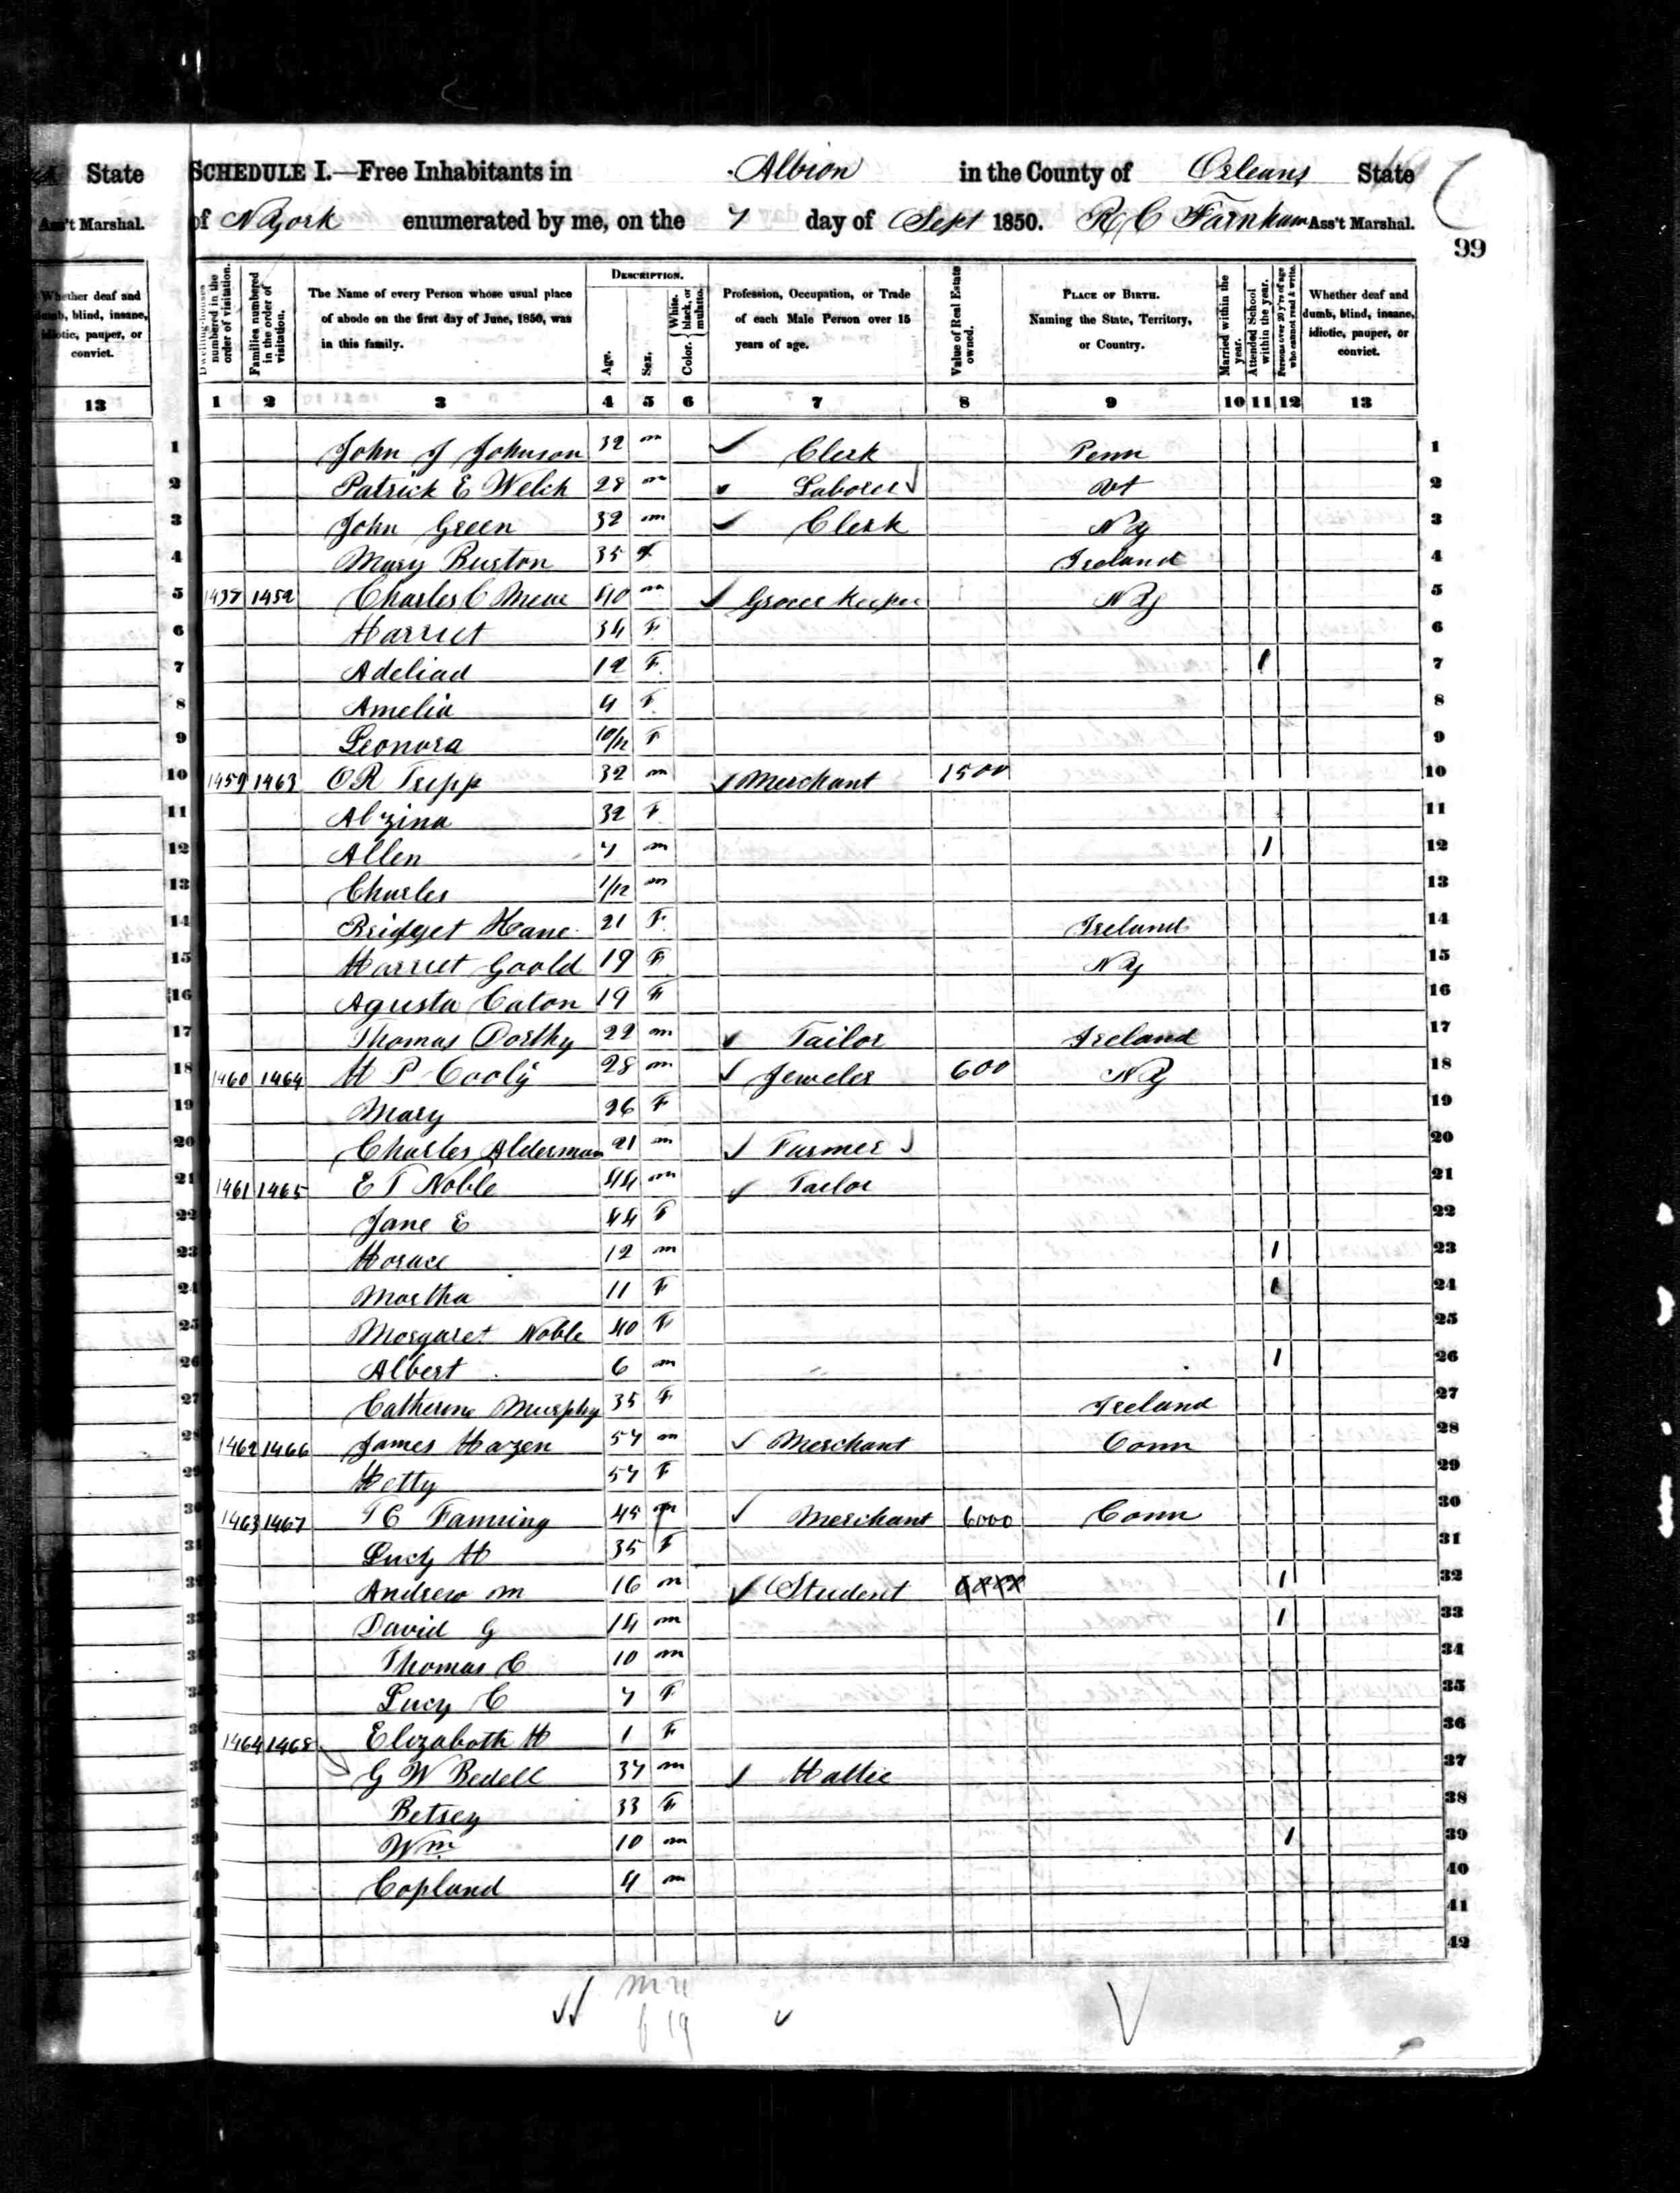 State
Ass't Marshal.
Whether deaf and
dumb, blind, insane,
idiotic, pauper, or
convict.
13
SCHEDULE I.—Free Inhabitants in Albion in the County of Orleans State
of N York enumerated by me, on the 7 day of Sept 1850. R C Farnham Ass't Marshal.
99
Dwelling-houses numbered in the order of visitation.
Families numbered in the order of visitation.
The Name of every Person whose usual place of abode on the first day of June, 1850, was in this family.
DESCRIPTION.
Age.
Sex.
Color. { White, black, or mulatto.
Profession, Occupation, or Trade of each Male Person over 15 years of age.
Value of Real Estate owned.
PLACE OF BIRTH. Naming the State, Territory, or Country.
Married within the year.
Attended School within the year.
Persons over 20 y'rs of age who cannot read & write.
Whether deaf and dumb, blind, insane, idiotic, pauper, or convict.
1 2 3 4 5 6 7 8 9 10 11 12 13
1 John J Johnson 32 m Clerk Penn 1
2 Patrick E Welch 28 m Laborer Vt 2
3 John Green 32 m Clerk NY 3
4 Mary Burton 35 F Ireland 4
5 1437 1452 Charles C 40 m Grocer Keeper NY 5
6 Harriet 34 F 6
7 Adeliad 12 F 1 7
8 Amelia 4 F 8
9 Leonora 10/12 F 9
10 1459 1463 O R Tripp 32 m Merchant 1500 10
11 Alzina 32 F 11
12 Allen 7 m 1 12
13 Charles 1/12 m 13
14 Bridget Kane 21 F Ireland 14
15 Harriet Goold 19 F NY 15
16 Agusta Caton 19 F 16
17 Thomas Dorthy 22 m Tailor Ireland 17
18 1460 1464 H P Cooly 28 m Jeweler 600 NY 18
19 Mary 26 F 19
20 Charles Alderman 21 m Farmer 20
21 1461 1465 E T Noble 44 m Tailor 21
22 Jane E 44 F 22
23 Horace 12 m 1 23
24 Martha 11 F 1 24
25 Margaret Noble 40 F 25
26 Albert 6 m 1 26
27 Catherine Murphy 35 F Ireland 27
28 1462 1466 James Hazen 57 m Merchant Conn 28
29 Hetty 57 F 29
30 1463 1467 T C Fanning 45 m Merchant 6000 Conn 30
31 Lucy H 35 F 31
32 Andrew M 16 m Student 1 32
33 David G 14 m 1 33
34 Thomas C 10 m 34
35 Lucy C 7 F 35
36 1464 1468 Elizabeth H 1 F 36
37 G W Bedell 37 m Hatter 37
38 Betsey 33 F 38
39 Wm 10 m 1 39
40 Copland 4 m 40
41
42
m 21
f 19